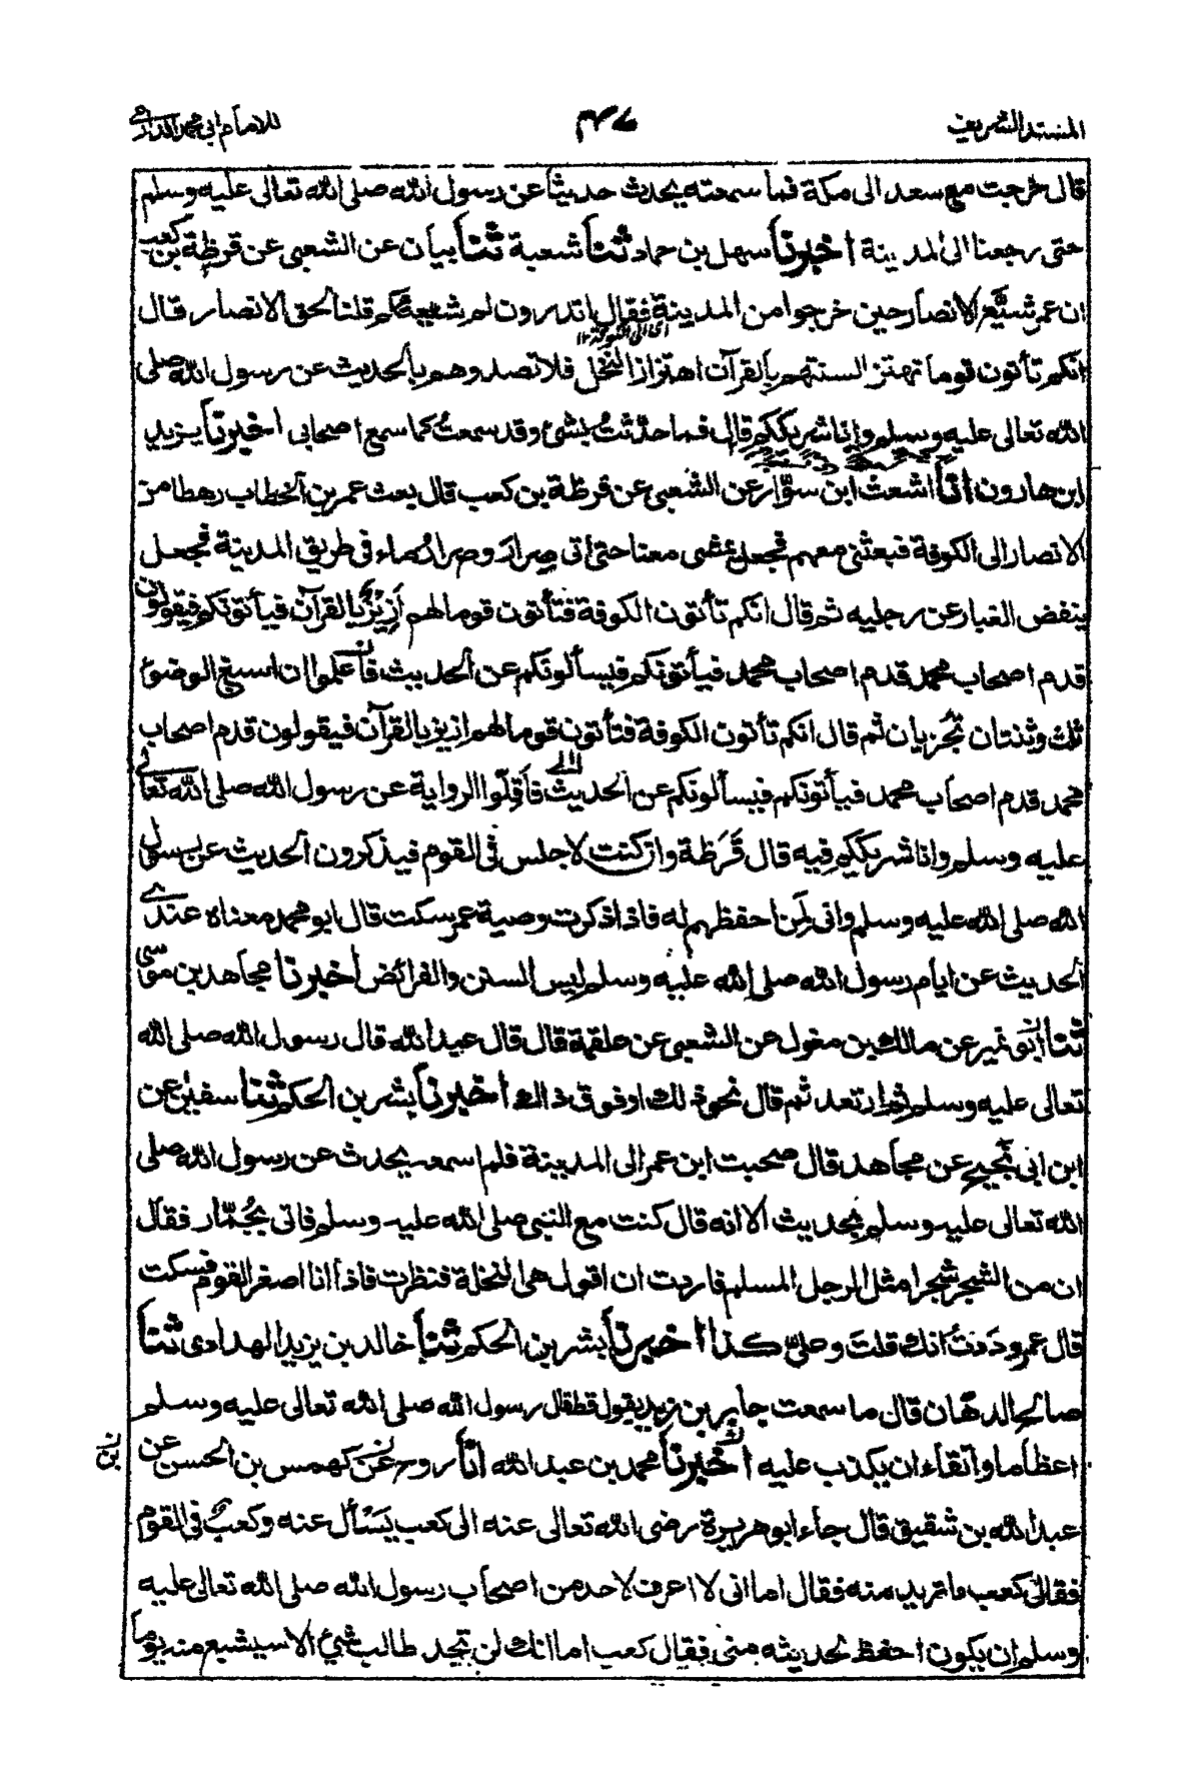 المسند الشريف
للامام ابی محمد الدارمی
قال خرجت مع سعد الى مكة فما سمعته يحدث حديثا عن رسول الله صلى الله تعالى عليه وسلم
حتى رجعنا الى المدينة اخبرنا سهل بن حماد ثنا شعبة ثنا بيان عن الشعبى عن قرظة بن كعب
ان عمر شيّع الانصار حين خرجوا من المدينة فقال اتدرون لم شيعتكم قلنا لحق الانصار قال
اى الى الكوفة ١٢
انكم تأتون قوما تهتز السنتهم بالقرآن اهتزاز النخل فلا تصدوهم بالحديث عن رسول الله صلى
الله تعالى عليه وسلم وانا شريككم قال فما حدّثت بشئ وقد سمعتُ كما سمع اصحابى اخبرنا يزيد
ابن هارون انا اشعث ابن سوّار عن الشعبى عن قرظة بن كعب قال بعث عمر بن الخطاب رهطا من
الانصار الى الكوفة فبعثنى معهم فجعل يمشى معنا حتى اتى صِرارَ وصرار ماء فى طريق المدينة فجعل
ينفض الغبار عن رجليه ثم قال انكم تأتون الكوفة فتأتون قوما لهم أَزِيْزٌ بالقرآن فيأتونكم فيقولون
قدم اصحاب محمد قدم اصحاب محمد فيأتونكم فيسألونكم عن الحديث فاعلموا ان اسبغ الوضوء
ثلث وثنتان تُجزيان ثم قال انكم تأتون الكوفة فتأتون قوما لهم ازيز بالقرآن فيقولون قدم اصحاب
محمد قدم اصحاب محمد فيأتونكم فيسألونكم عن الحديث فأقِلّوا الرواية عن رسول الله صلى الله تعالى
عليه وسلم وانا شريككم فيه قال قَرَظة وان كنت لاجلس فى القوم فيذكرون الحديث عن رسول
الله صلى الله عليه وسلم وانى لَمِن احفظهم له فاذا ذكرت وصية عمر سكت قال ابو محمد معناه عندى
الحديث عن ايام رسول الله صلى الله عليه وسلم ليس السنن والفرائض اخبرنا مجاهد بن موسى
ثنا ابن نمير عن مالك بن مغول عن الشعبى عن علقمة قال قال عبد الله قال رسول الله صلى الله
تعالى عليه وسلم ثم ارتعد ثم قال نحو ذلك او فوق ذاك اخبرنا بشر بن الحكم ثنا سفين عن
ابن ابى نجيح عن مجاهد قال صحبت ابن عمر الى المدينة فلم اسمعه يحدث عن رسول الله صلى
الله تعالى عليه وسلم بحديث الا انه قال كنت مع النبى صلى الله عليه وسلم فاتى بجُمّار فقال
ان من الشجر شجرا مثل الرجل المسلم فاردت ان اقول هى النخلة فنظرت فاذا انا اصغر القوم فسكت
قال عمر وددتُ انك قلتَ وعلىّ كذا اخبرنا بشر بن الحكم ثنا خالد بن يزيد الهدادى ثنا
صالح الدهّان قال ما سمعت جابر بن زيد يقول قط قال رسول الله صلى الله تعالى عليه وسلم
اعظاما واتقاء ان يكذب عليه اخبرنا محمد بن عبد الله انا روح عن كهمس بن الحسن عن
عبد الله بن شقيق قال جاء ابو هريرة رضى الله تعالى عنه الى كعب يَسْأل عنه وكعبٌ فى القوم
فقال كعب ما تريد منه فقال اما انى لا اعرف لاحد من اصحاب رسول الله صلى الله تعالى عليه
وسلم ان يكون احفظ لحديثه منى فقال كعب اما انك لن تجد طالب شئ الا سيشبع منه يوما